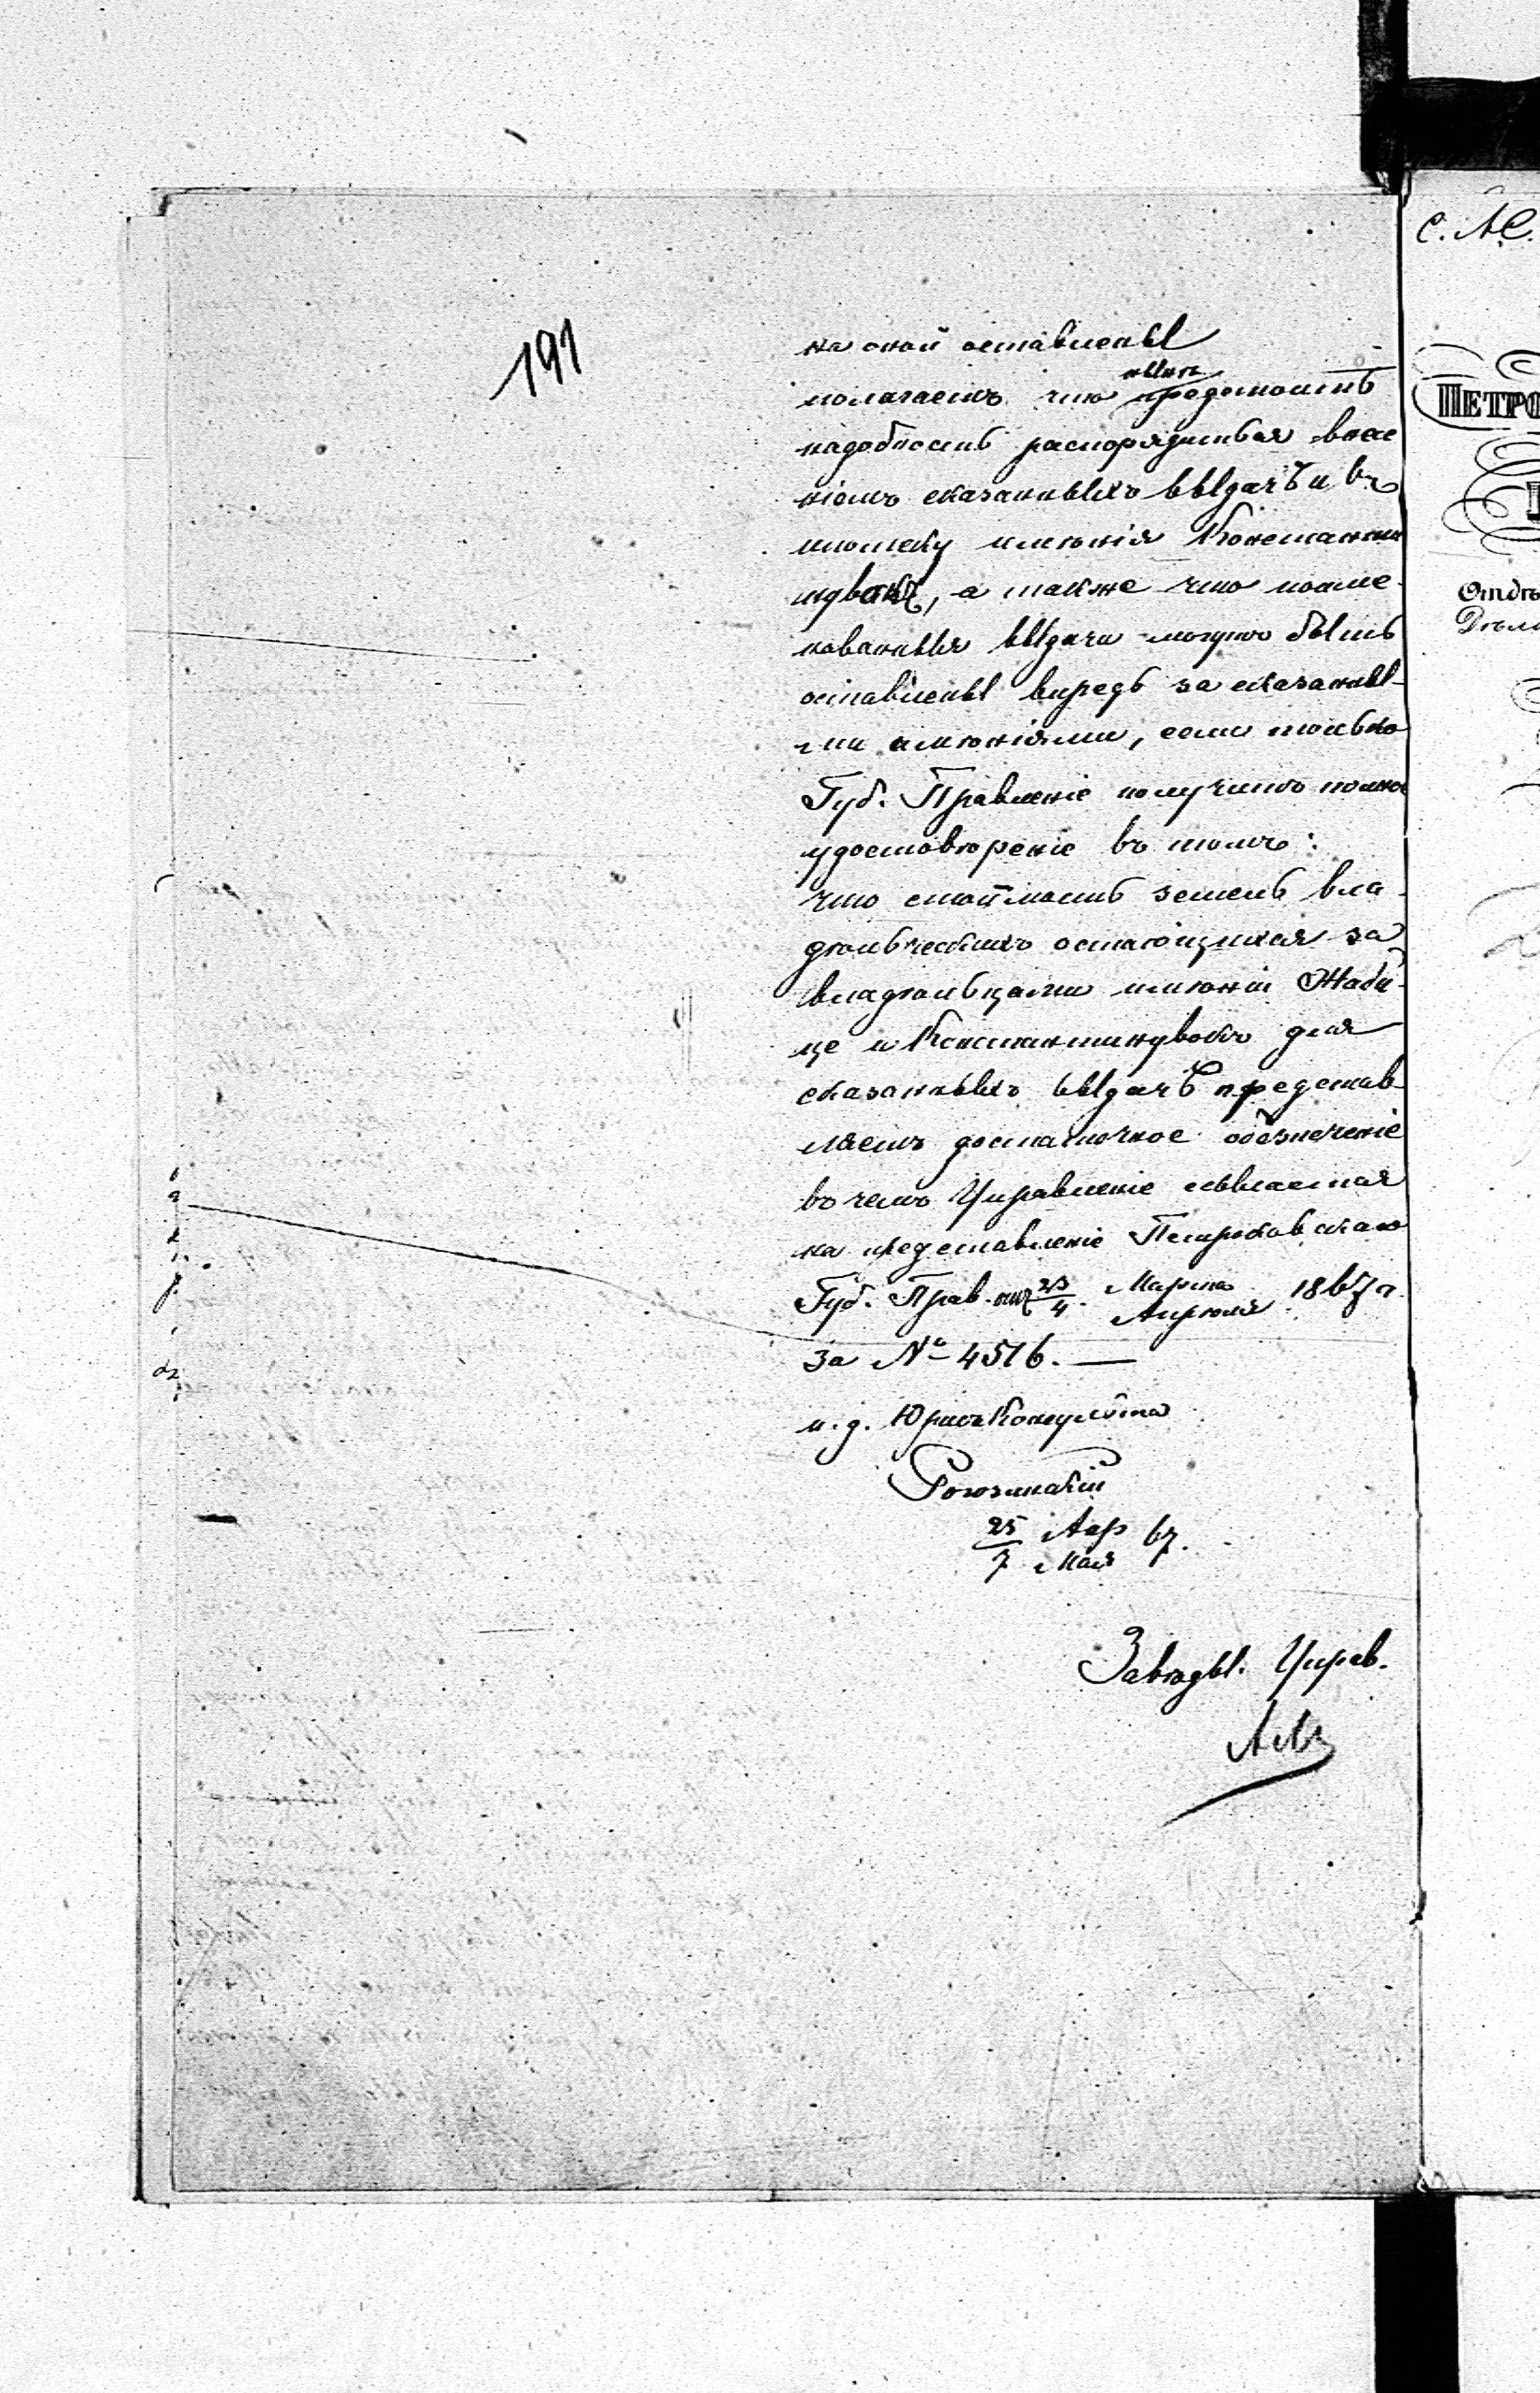 191
на оной оставлены
нынѣ
полагаетъ что предстоитъ
надобность распорядиться внесе
ніемъ сказанныхъ выдачъ и въ
ипотеку имѣнія Константи
нувекъ, а также что поиме-
нованныя выдачи могутъ быть
оставлены впредь за сказанны-
ми имѣніями, если только
Губ. Правленіе получитъ полное
удостовѣреніе въ томъ:
что стоимость земель вла-
дѣльческихъ остающихся за
владѣльцами имѣній Жаби-
це и Константинувекъ для
сказанныхъ выдачъ представ
ляетъ достаточное обезпеченіе
въ чемъ Управленіе ссылается
на представленіе Петроковскаго
Губ. Прав. отъ 23/4 Марта/Апрѣля 1867 г.
за № 4516. —
и. д. Юрисъ Консульта
Рогозинскій
25/7 Апр/Мая 67.
Завѣды. Управ.
С. Ас.
ПЕТРО
Отдѣ